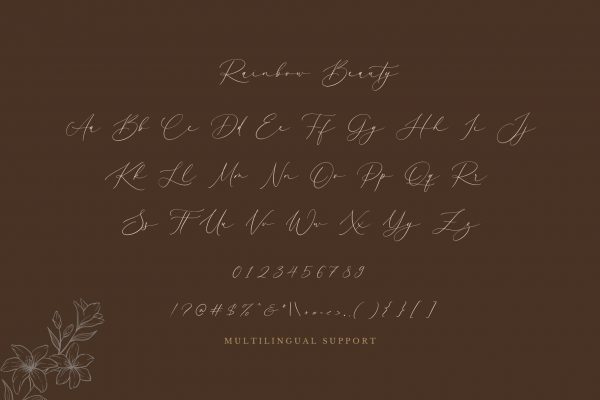 Rainbow Beauty
Aa Bb Cc Dd Ee Ff Gg Hh Ii Jj
Kk Ll Mm Nn Oo Pp Qq Rr
Ss Tt Uu Vv Ww Xx Yy Zz
0123456789
!?@#$%^&*|\+=<>,.(){}[]
MULTILINGUAL SUPPORT